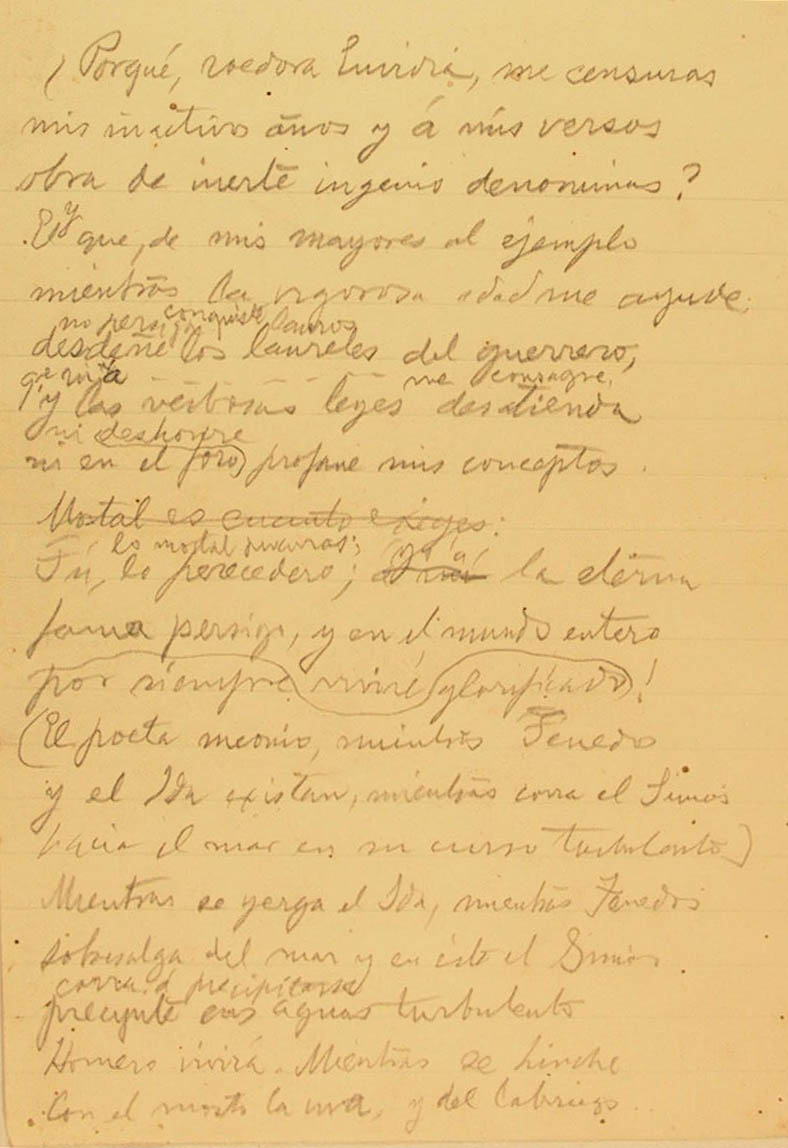 ¿Porqué, roedora Envidia, me censuras
mis inactivos años y á mis versos
obra de inerte ingenio denominas?
y
El que, de mis mayores al ejemplo
mientras la vigorosa edad me ayude,
no persiga conquiste lauros
desdeñe los laureles del guerrero,
me consagre,
y las verbosas leyes desatienda
ni deshonre
ni en el foro profane mis conceptos.
Mortal es cuanto exiges:
lo mortal procuras;
Tú, lo perecedero; la eterna
fama persigo, y en el mundo entero
por siempre viviré glorificado!
(El poeta meonio, mientras Tenedos
y el Ida existan, mientras corra el Simois
hacia el mar en su curso turbulento)
Mientras se yerga el Ida, mientras Tenedos
sobresalga del mar y en éste el Simois
corra á precipitarse
precipite sus aguas turbulento
Homero vivirá. Mientras se hinche
con el mosto la uva, y del labriego